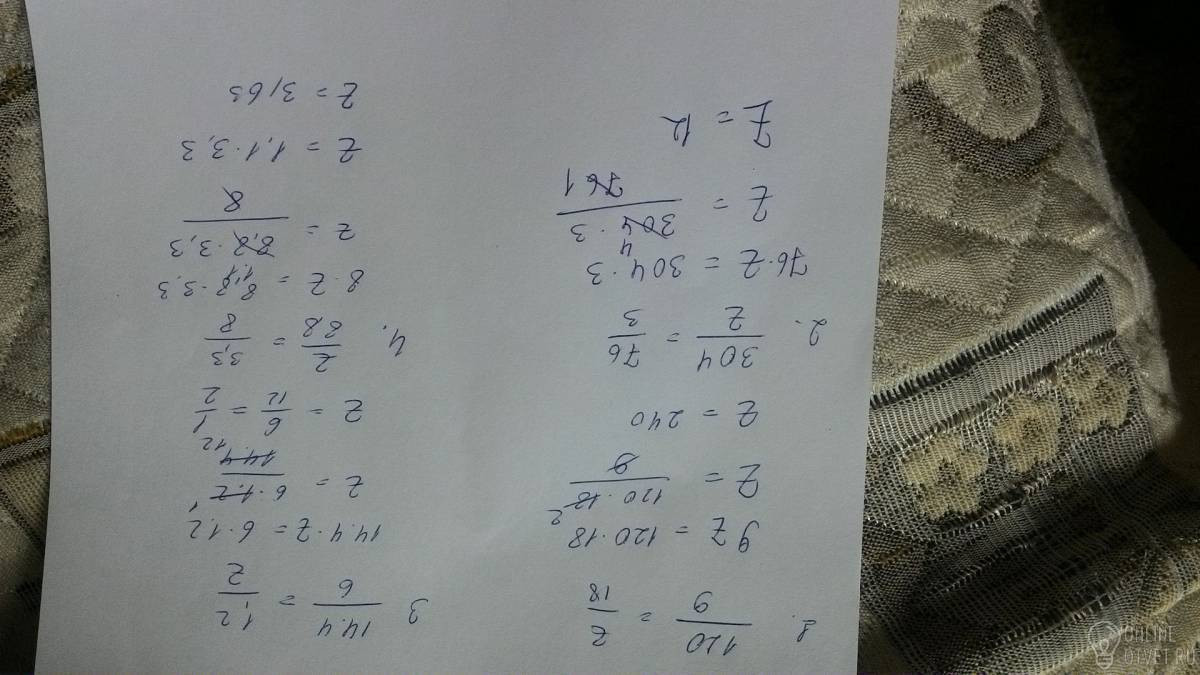 1. 120/9 = z/18
9z = 120·18
z = 120·18 2/9
z = 240
2. 304/z = 76/3
76·z = 304·3
z = 304 4·3/76 1
z = 12
3 14.4/6 = 1.2/z
14.4·z = 6·1.2
z = 6·1.2 1/14.4 12
z = 6/12 = 1/2
4. z/8,8 = 3,3/8
8·z = 8,8·3,3
z = 8,8 1,1·3,3/8
z = 1,1·3,3
z = 3,63
ONLINE
OTVET.RU